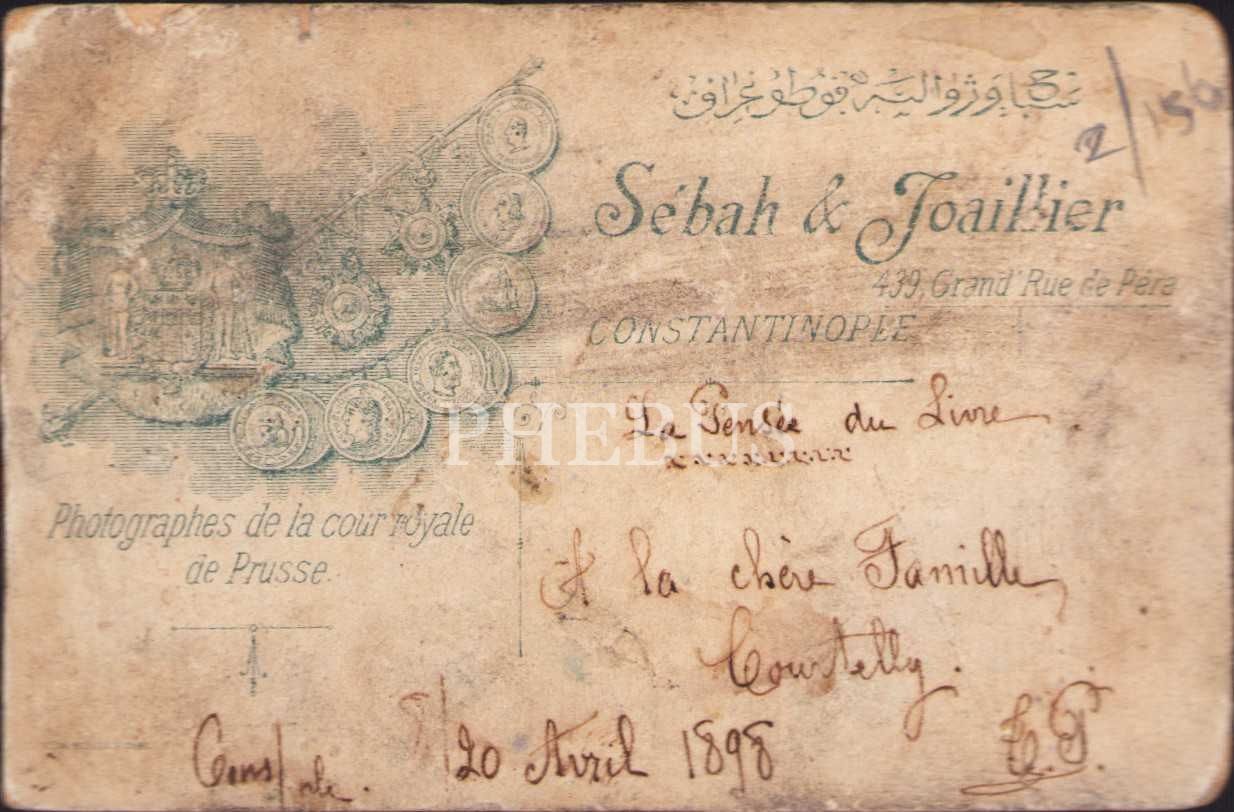 سباح و ژوالیه فوطوغراف
2/156
Sébah & Joaillier
439, Grand' Rue de Péra
CONSTANTINOPLE
PHEBUS
La Pensée du Livre.
xxxxxxxxx
Photographes de la cour royale
de Prusse.
A la chère Famille
Courtelly.
Cons/ple. 8/20 Avril 1898